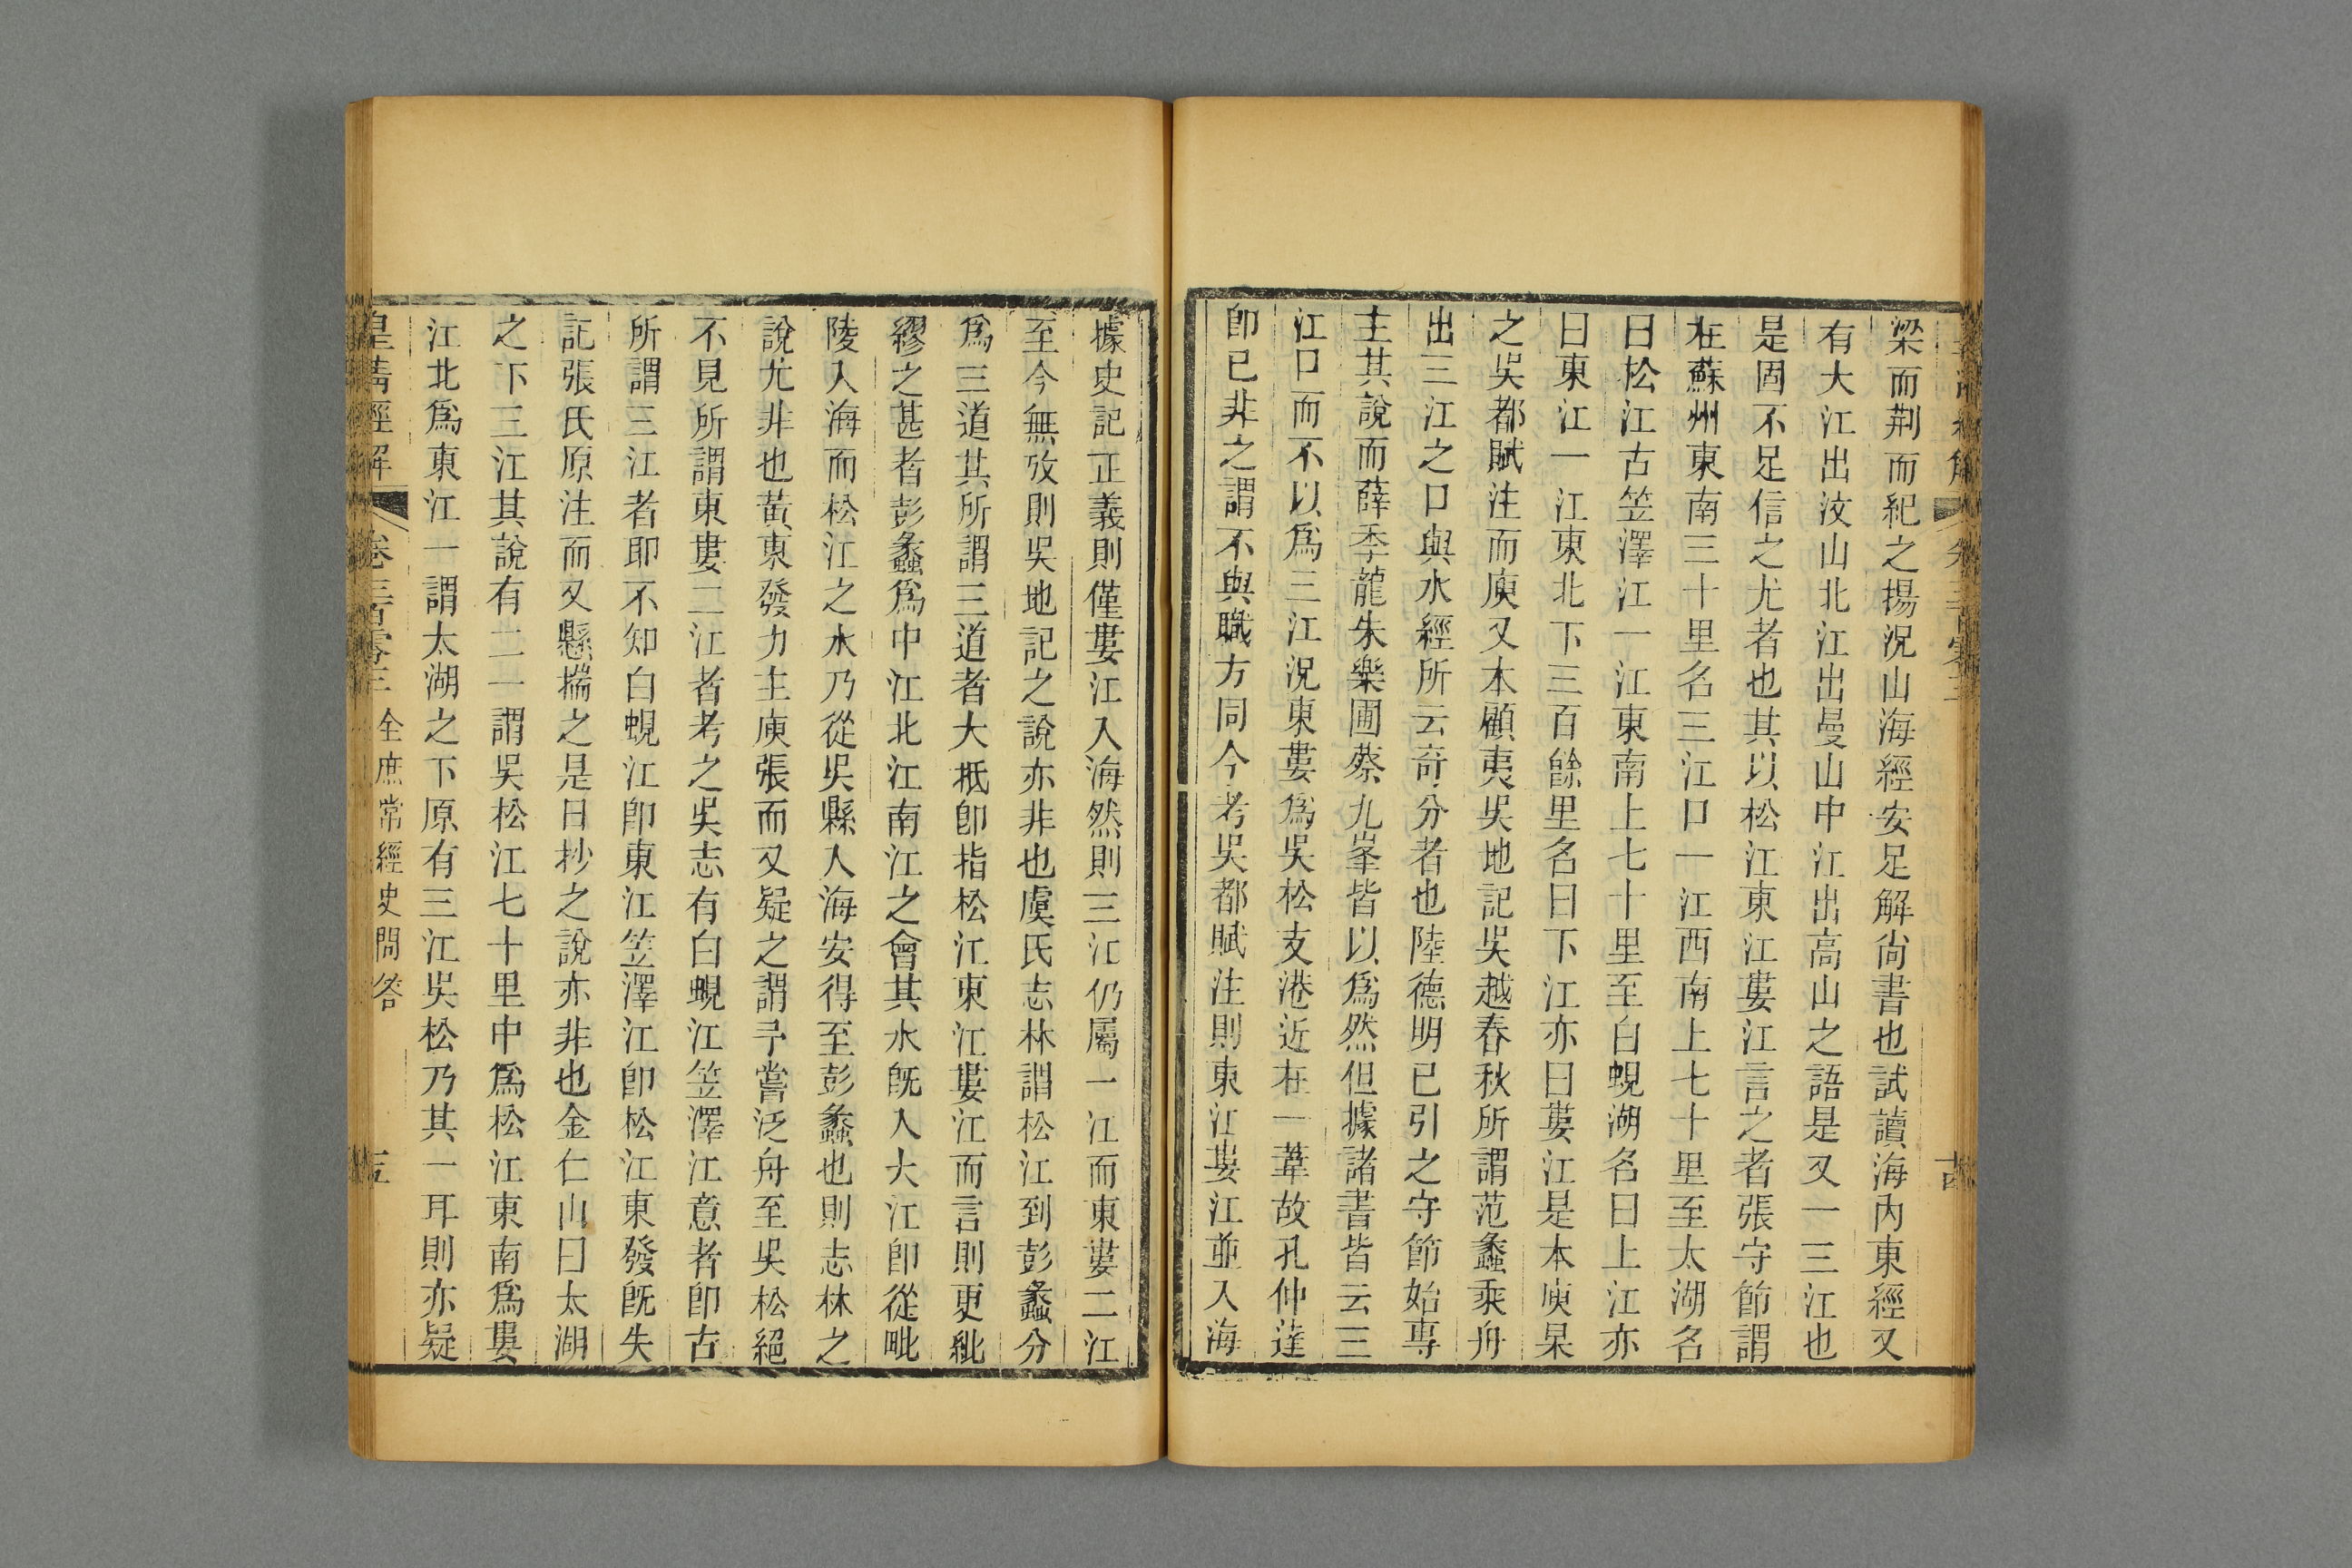 梁而荆而紀之揚況山海經安足解尙書也試讀海內東經又
有大江出汶山北江出曼山中江出高山之語是又一三江也
是固不足信之尤者也其以松江東江婁江言之者張守節謂
在蘇州東南三十里名三江口一江西南上七十里至太湖名
曰松江古笠澤江一江東南上七十里至白蜆湖名曰上江亦
曰東江一江東北下三百餘里名曰下江亦曰婁江是本庾杲
之吳都賦注而庾又本顧夷吳地記吳越春秋所謂范蠡乘舟
出三江之口與水經所云奇分者也陸德明已引之守節始專
主其說而薛季龍朱樂圃蔡九峯皆以爲然但據諸書皆云三
江口而不以爲三江況東婁爲吳松支港近在一葦故孔仲達
卽已非之謂不與職方同今考吳都賦注則東江婁江並入海
據史記正義則僅婁江入海然則三江仍屬一江而東婁二江
至今無攷則吳地記之說亦非也虞氏志林謂松江到彭蠡分
爲三道其所謂三道者大抵卽指松江東江婁江而言則更紕
繆之甚者彭蠡爲中江北江南江之會其水旣入大江卽從毗
陵入海而松江之水乃從吳縣入海安得至彭蠡也則志林之
說尤非也黃東發力主庾張而又疑之謂予嘗泛舟至吳松絕
不見所謂東婁二江者考之吳志有白蜆江笠澤江意者卽古
所謂三江者耶不知白蜆江卽東江笠澤江卽松江東發旣失
記張氏原注而又懸揣之是日抄之說亦非也金仁山曰太湖
之下三江其說有二一謂吳松江七十里中爲松江東南爲婁
江北爲東江一謂太湖之下原有三江吳松乃其一耳則亦疑
皇淸經解 卷三百零三 全庶常經史問答